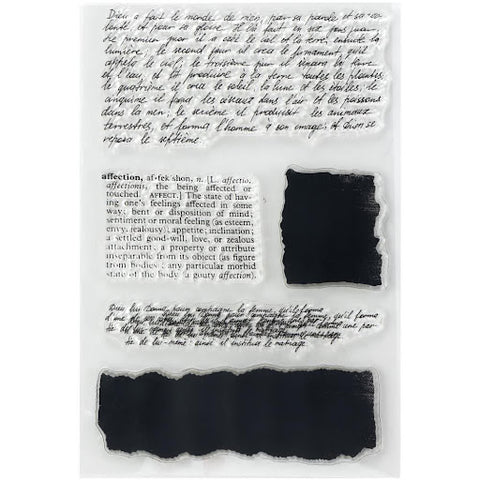 Dieu a fait le monde de rien, par sa parole et sa vo-
lonté et pour sa gloire. Il l'a fait en six jours;
le premier jour il créa le ciel et la terre, ensuite la
lumière; le second jour il créa le firmament, qu'il
appela le ciel; le troisième jour il sépara la terre
et l'eau, et fit produire à la terre toutes les plantes;
le quatrième il créa le soleil, la lune et les étoiles; le
cinquième il fond les oiseaux dans l'air et les poissons
dans la mer; le sixième il produisit les animaux
terrestres, et forma l'homme à son image; et Dieu se
reposa le septième.
affection, af-fek'shon, n. [L. affectio,
affectionis, the being affected or
touched. AFFECT.] The state of hav-
ing one's feelings affected in some
way; bent or disposition of mind;
sentiment or moral feeling (as esteem,
envy, jealousy); appetite; inclination;
a settled good-will, love, or zealous
attachment; a property or attribute
inseparable from its object (as figure
from bodies); any particular morbid
state of the body (a gouty affection).
Dieu lui donna pour compagne la femme, qu'il forma
d'une
de lui-même: ainsi il institua le mariage.